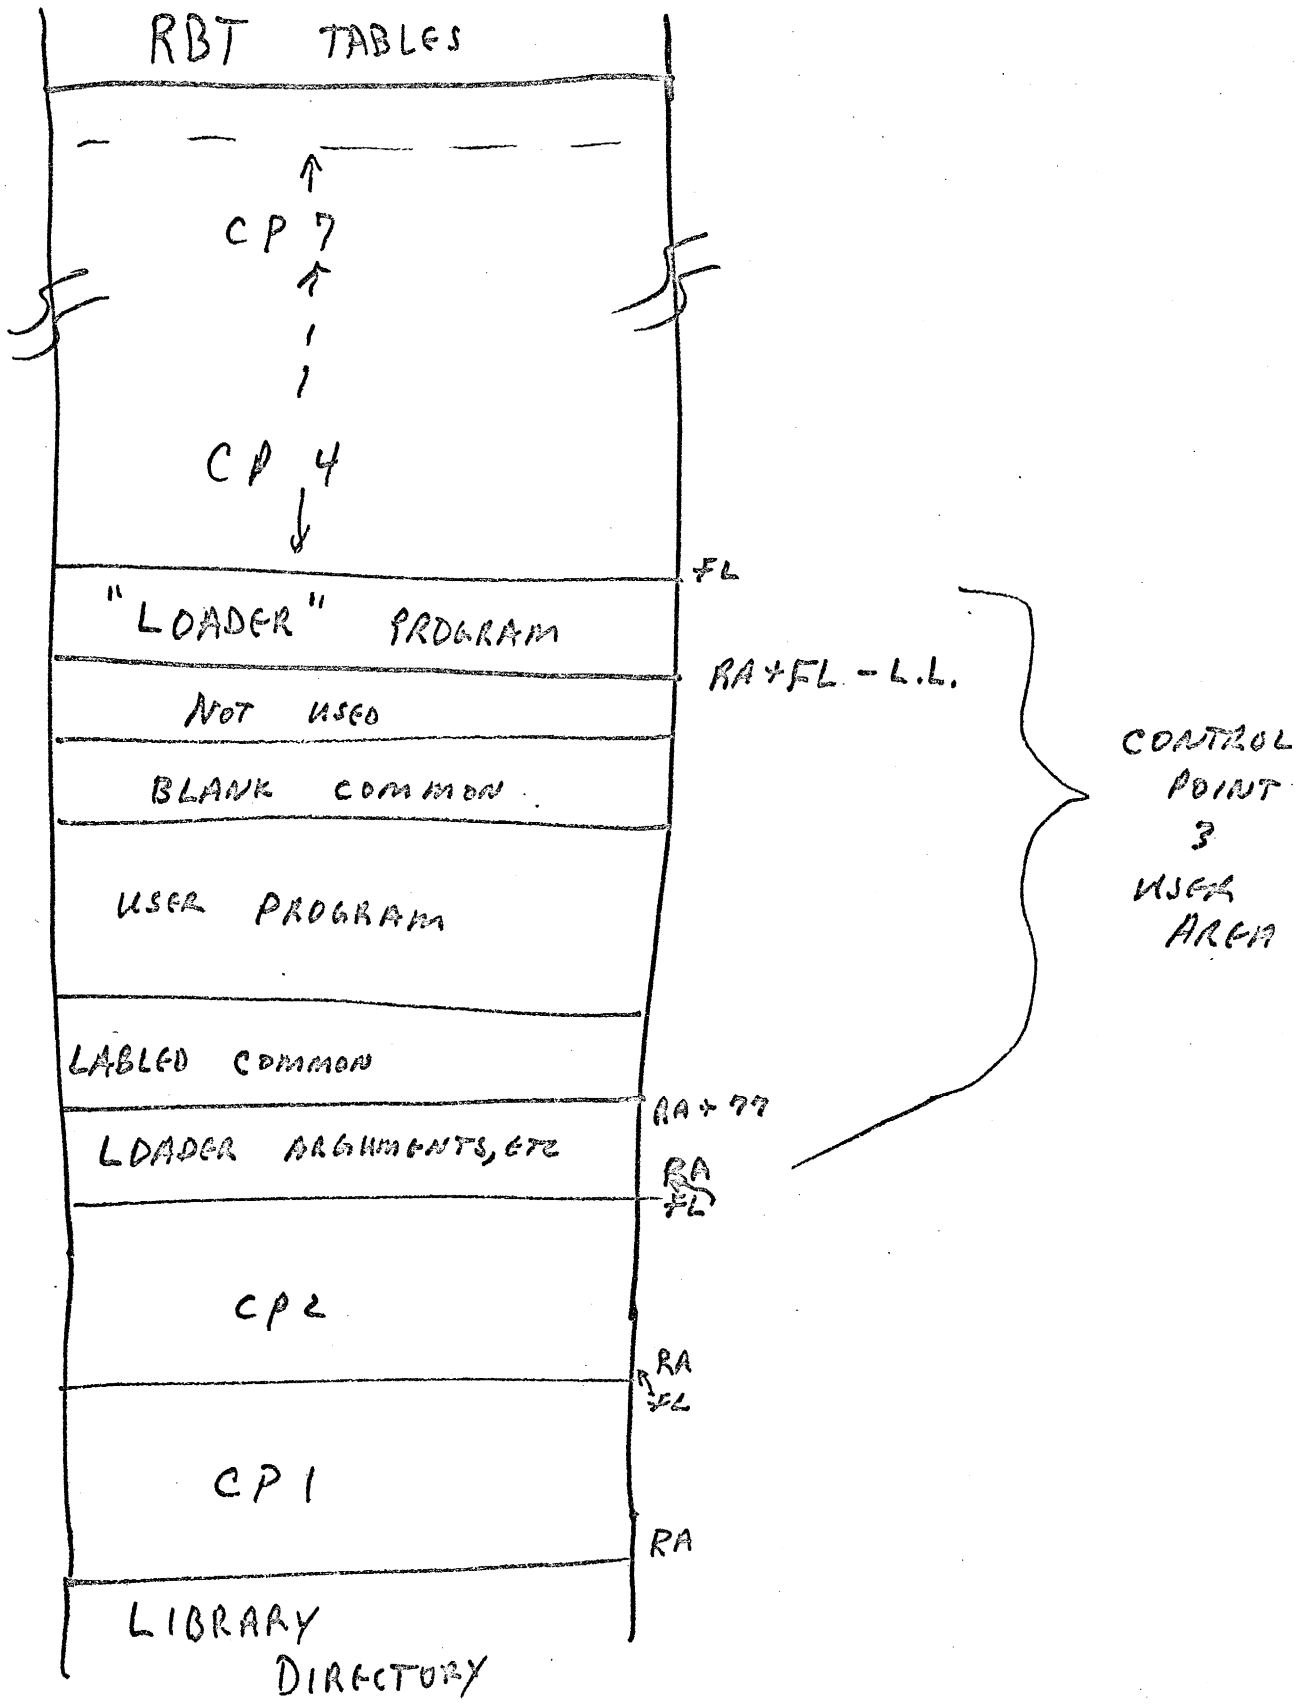 RBT TABLES
CP 7
CP 4
FL
"LOADER" PROGRAM
RA+FL - L.L.
NOT USED
BLANK COMMON
USER PROGRAM
LABLED COMMON
RA+77
LOADER ARGUMENTS, ETC
RA
FL
CP2
RA
FL
CP1
RA
LIBRARY
DIRECTORY
CONTROL
POINT
3
USER
AREA